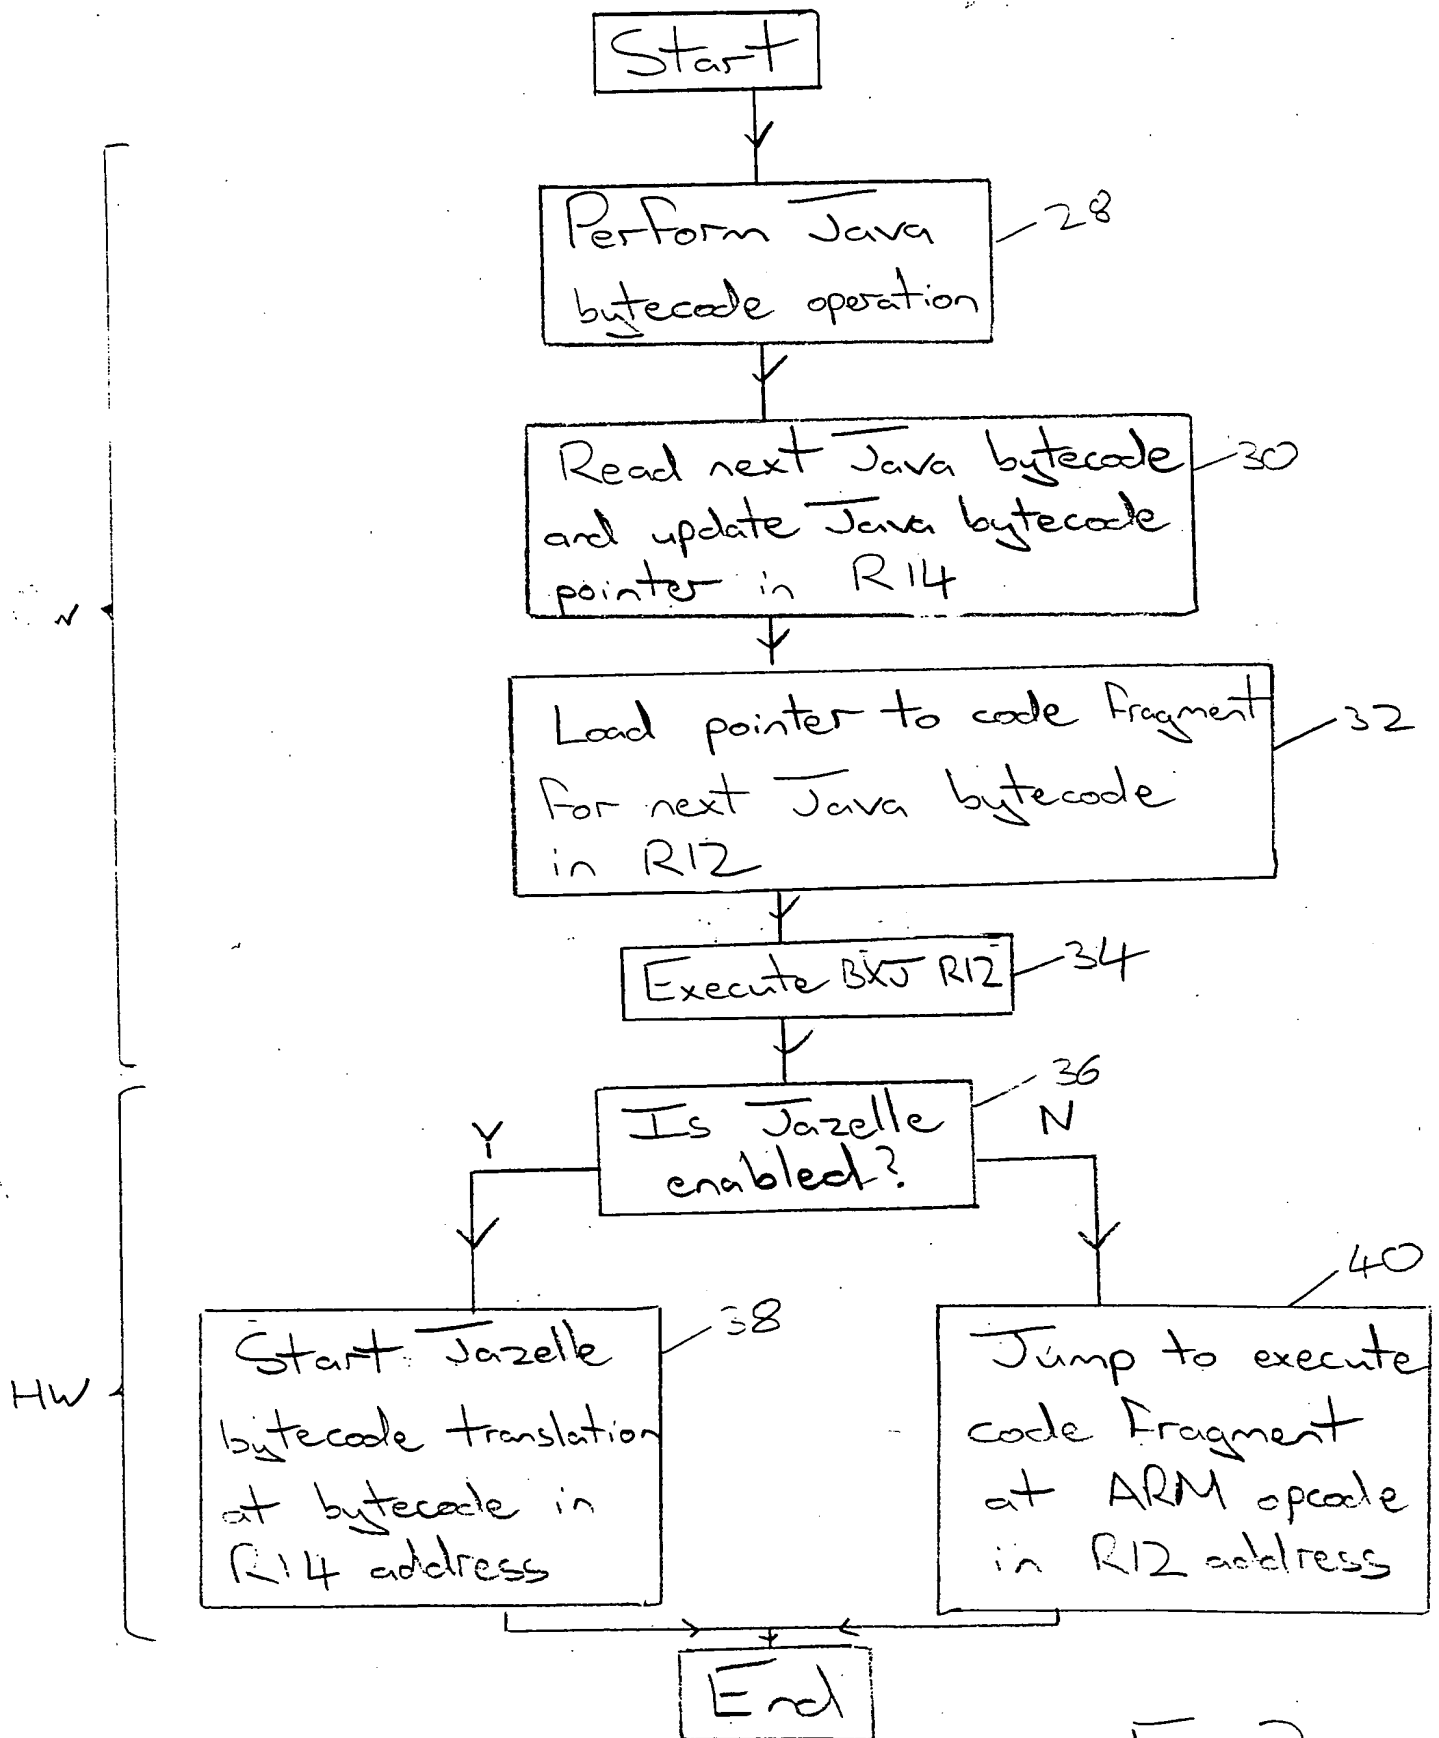 Start
Perform Java
28
bytecode operation
Read next Java bytecode
30
and update Java bytecode
pointer in R14
Load pointer to code fragment
32
for next Java bytecode
in R12
Execute BXJ R12
34
36
Is Jazelle
enabled?
Y
N
40
38
Start Jazelle
bytecode translation
at bytecode in
R14 address
HW
Jump to execute
code fragment
at ARM opcode
in R12 address
End